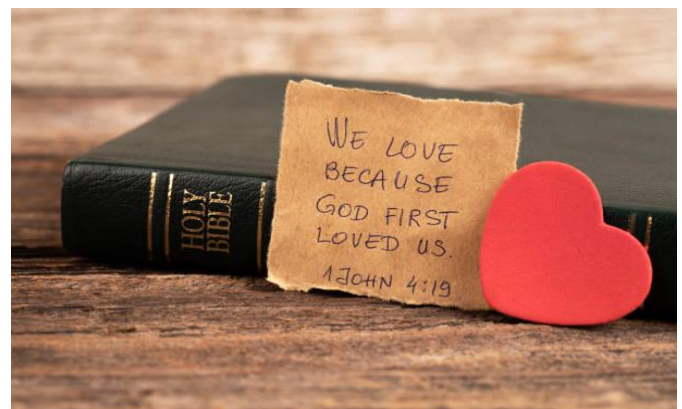 HOLY
BIBLE
WE LOVE
BECAUSE
GOD FIRST
LOVED US.
1 JOHN 4:19